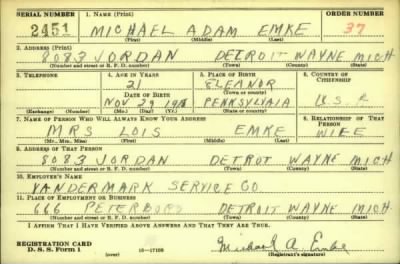 SERIAL NUMBER 1. NAME (Print) ORDER NUMBER
2451 MICHAEL ADAM EMKE 37
(First) (Middle) (Last)
2. ADDRESS (Print)
8083 JORDAN DETROIT WAYNE MICH
(Number and street or R. F. D. number) (Town) (County) (State)
3. TELEPHONE 4. AGE IN YEARS 5. PLACE OF BIRTH 6. COUNTRY OF CITIZENSHIP
21 ELEANOR
DATE OF BIRTH
NOV 29 PENNSYLVAIA U.S.
(Exchange) (Number) (Mo.) (Day) (Yr.) (State or country)
7. NAME OF PERSON WHO WILL ALWAYS KNOW YOUR ADDRESS 8. RELATIONSHIP OF THAT PERSON
MRS LOIS EMKE WIFE
(Mr., Mrs., Miss) (First) (Middle) (Last)
9. ADDRESS OF THAT PERSON
8083 JORDAN DETROT WAYNE MICH
(Number and street or R. F. D. number) (Town) (County) (State)
10. EMPLOYER'S NAME
VANDERMARK SERVICE CO
11. PLACE OF EMPLOYMENT OR BUSINESS
666 PETERBORO DETROIT WAYNE MICH
(Number and street or R. F. D. number) (Town) (County) (State)
I AFFIRM THAT I HAVE VERIFIED ABOVE ANSWERS AND THAT THEY ARE TRUE.
REGISTRATION CARD
D. S. S. Form 1 (over) 16—17105 Michael A. Emke
(Registrant's signature)